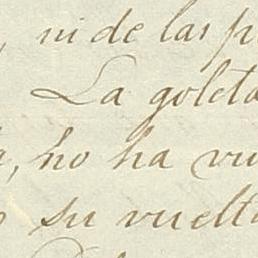 , ni de las p
La goleta
a, no ha vu
su vuelta